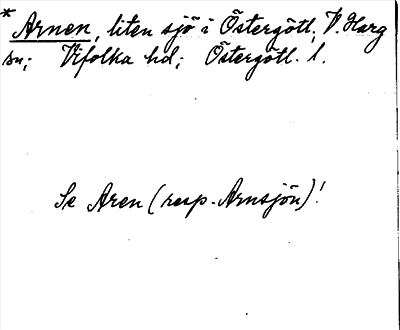 * Arnen, liten sjö i Östergötl., V. Harg
sn; Vifolka hd; Östergötl. l.
Se Aren (resp. Arnsjön)!